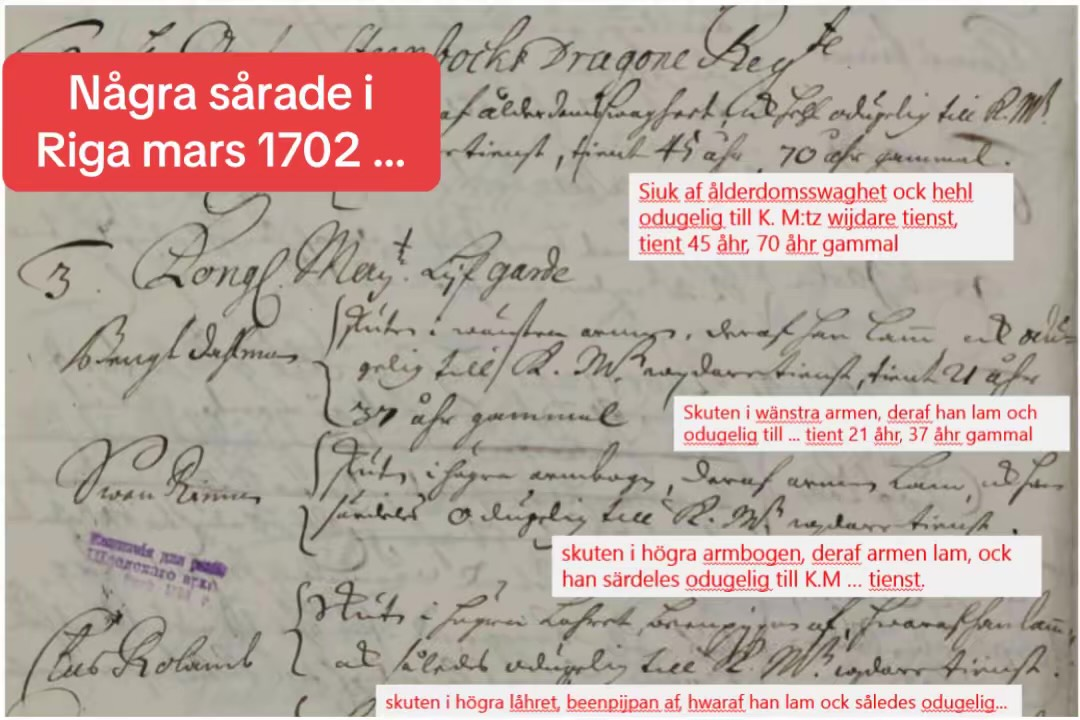 Steenbocks Dragone Regte
Några sårade i
Riga mars 1702 ...
af ålderdomsswaghet, ock hehl odugelig till K. Mtz
tienst, tient 45 åhr, 70 åhr gammal.
Siuk af ålderdomsswaghet ock hehl
odugelig till K. M:tz wijdare tienst,
tient 45 åhr, 70 åhr gammal
3. Kongl. Mayt. Lijf garde
Bengt Dahlman Skuten i wänstra armen, deraf han lam ock odu-
gelig till K. Mtz wijdare tienst, tient 21 åhr
37 åhr gammal
Skuten i wänstra armen, deraf han lam och
odugelig till ... tient 21 åhr, 37 åhr gammal
Swen skuten i högra armbogen, deraf armen lam, ock han
särdeles odugelig till K. Mtz wijdare tienst.
skuten i högra armbogen, deraf armen lam, ock
han särdeles odugelig till K.M ... tienst.
для
Шведского
Skuten i högra låhret, beenpijpan af, hwaraf han lam,
ock således odugelig till K. Mtz wijdare tienst.
skuten i högra låhret, beenpijpan af, hwaraf han lam ock således odugelig...